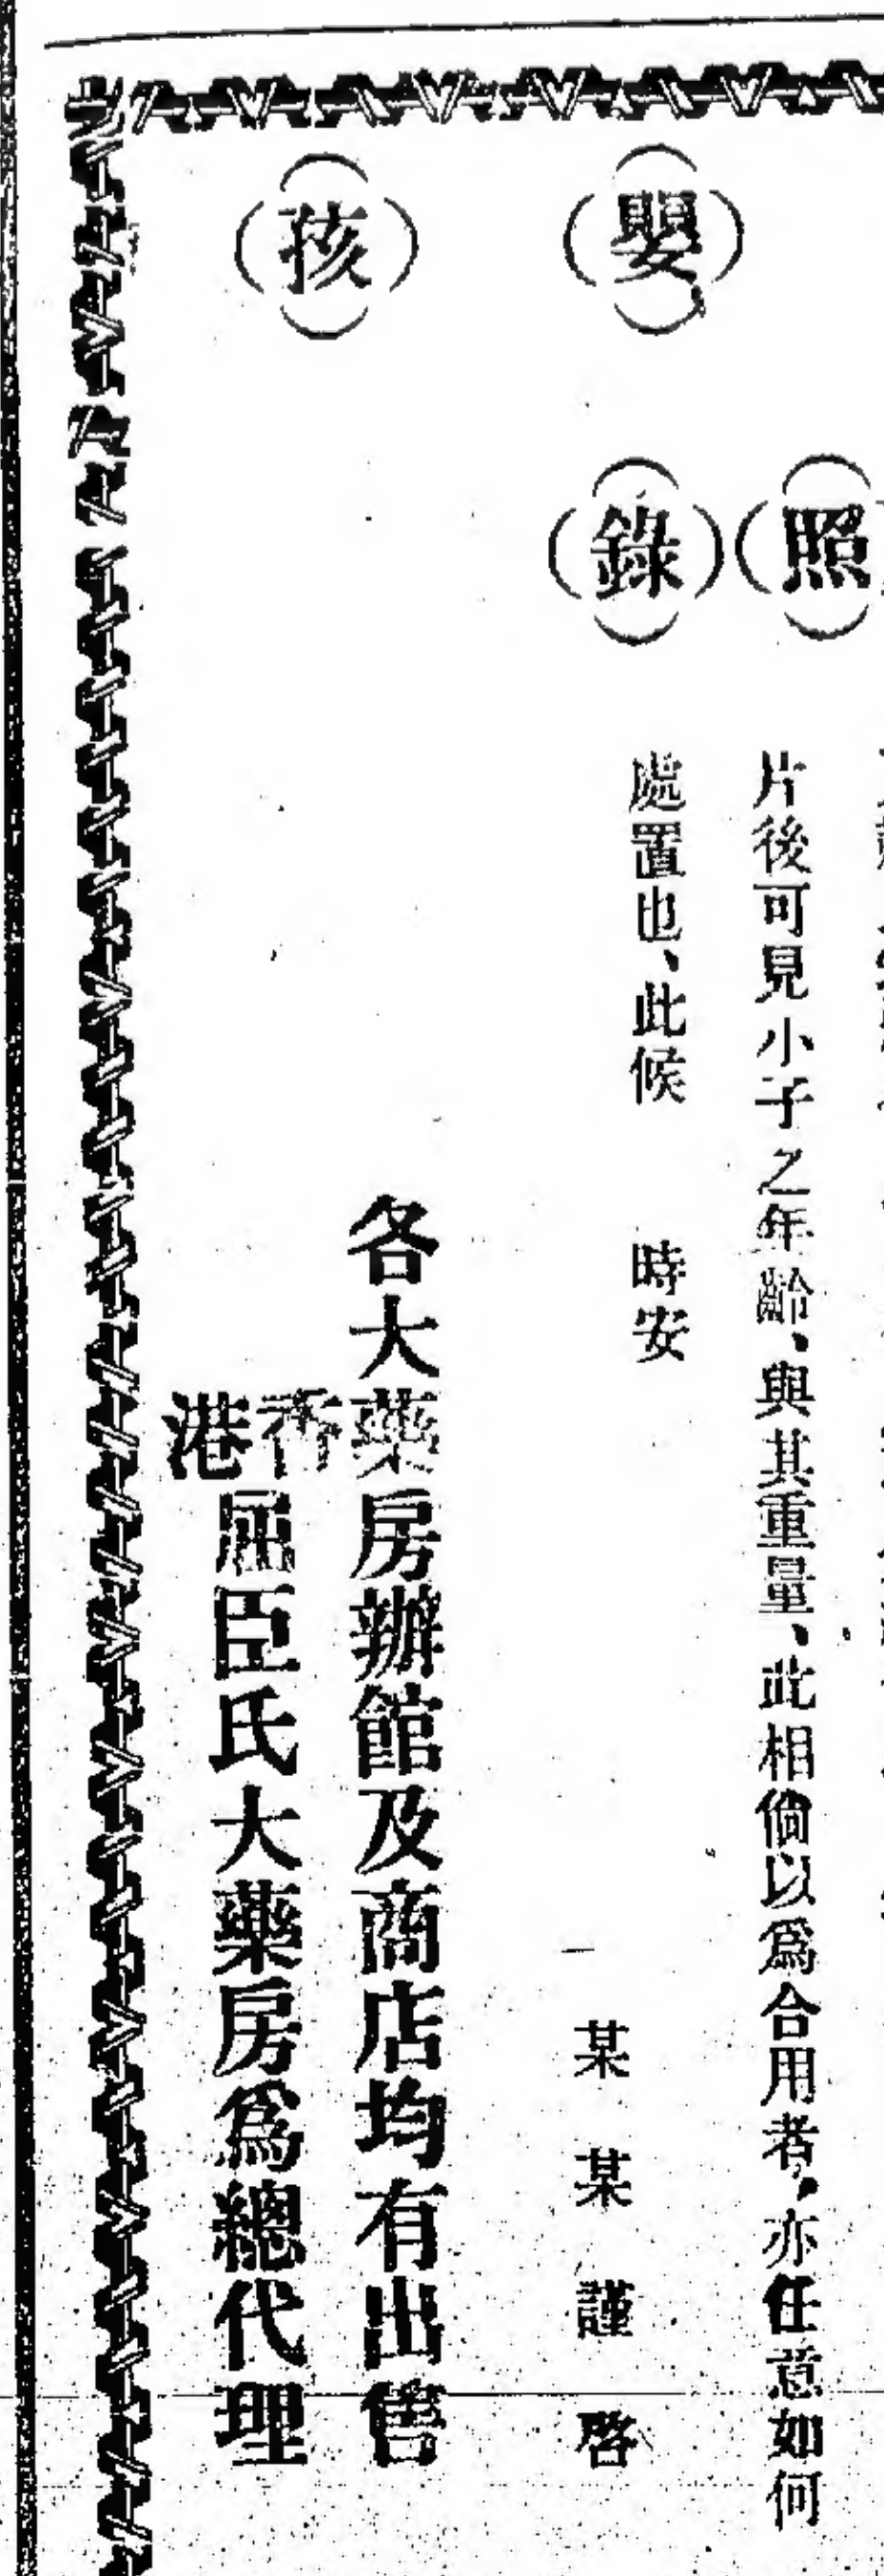 嬰孩
照錄
片後可見小子之年齡、與其重量、此相倘以爲合用者、亦任意如何
處置也、此候 時安
某某謹啓
各大藥房辦館及商店均有出售
香港屈臣氏大藥房爲總代理